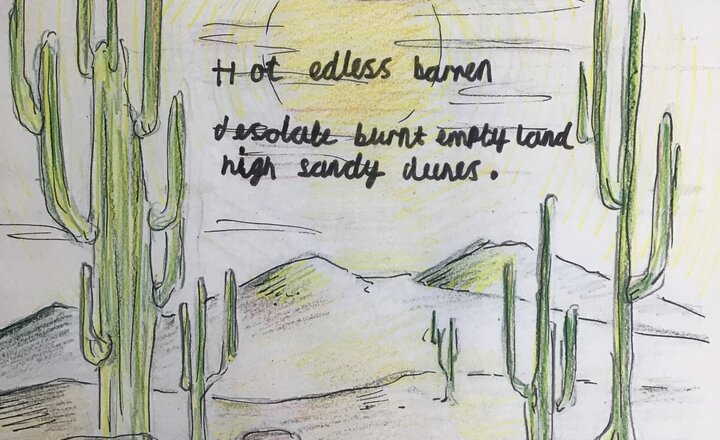 Hot edless barren
desolate burnt empty land
high sandy dunes.